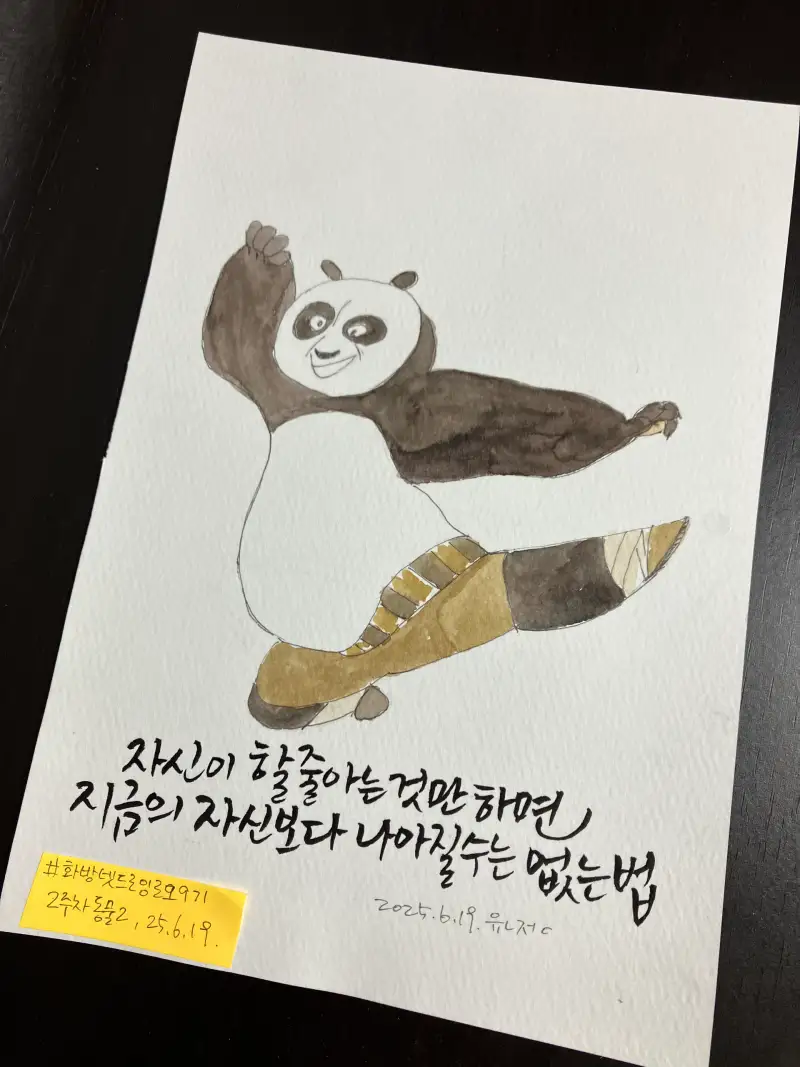 자신이 할줄아는것만하면
지금의 자신보다 나아질수는 없는법
#화방넷드로잉로오9기
2주차동물2, 25.6.19.
2025.6.19.